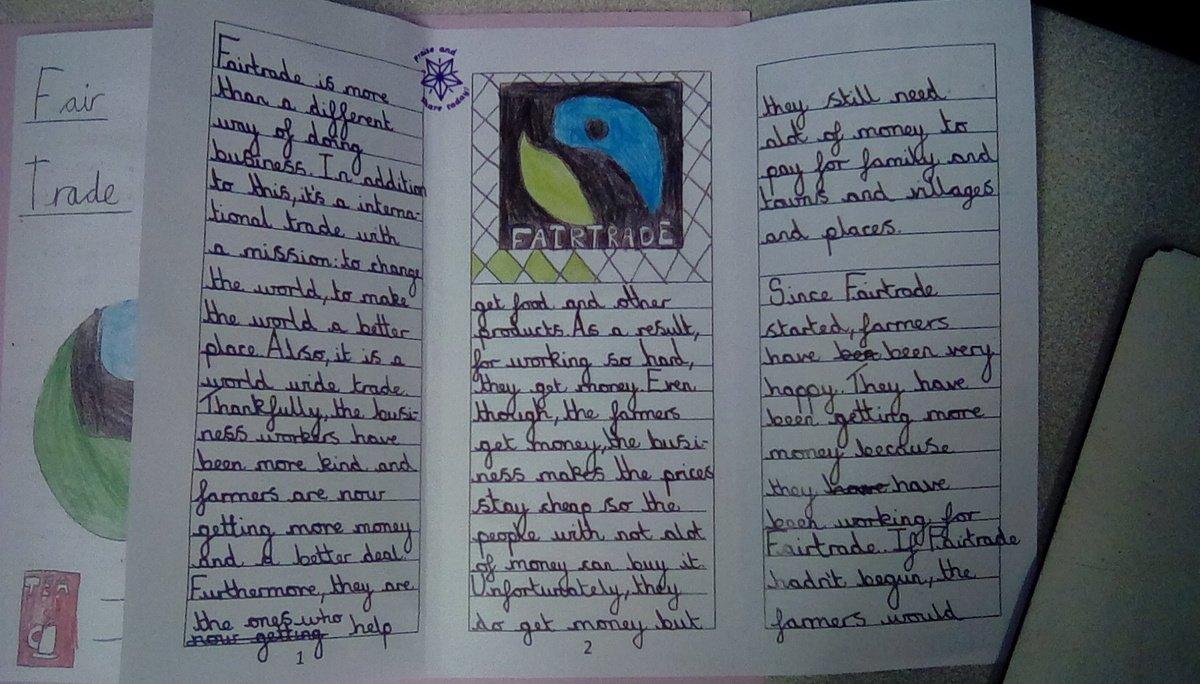 Fair
Trade
TEA
Fairtrade is more
than a different
way of doing
business. In addition
to this, it's a interna-
tional trade with
a mission: to change
the world, to make
the world a better
place. Also, it is a
world wide trade.
Thankfully, the busi-
ness workers have
been more kind and
farmers are now
getting more money
and a better deal.
Furthermore, they are
the ones who
now getting help
1
Praise and
share today!
FAIRTRADE
get food and other
products. As a result,
for working so hard,
they get money. Even
though, the farmers
get money, the busi-
ness makes the prices
stay cheap so the
people with not alot
of money can buy it.
Unfortunately, they
do get money but
2
they still need
alot of money to
pay for family and
towns and villages
and places.
Since Fairtrade
started, farmers
have been very
happy. They have
been getting more
money because
they have have
been working for
Fairtrade. If Fairtrade
hadn't begun, the
farmers would